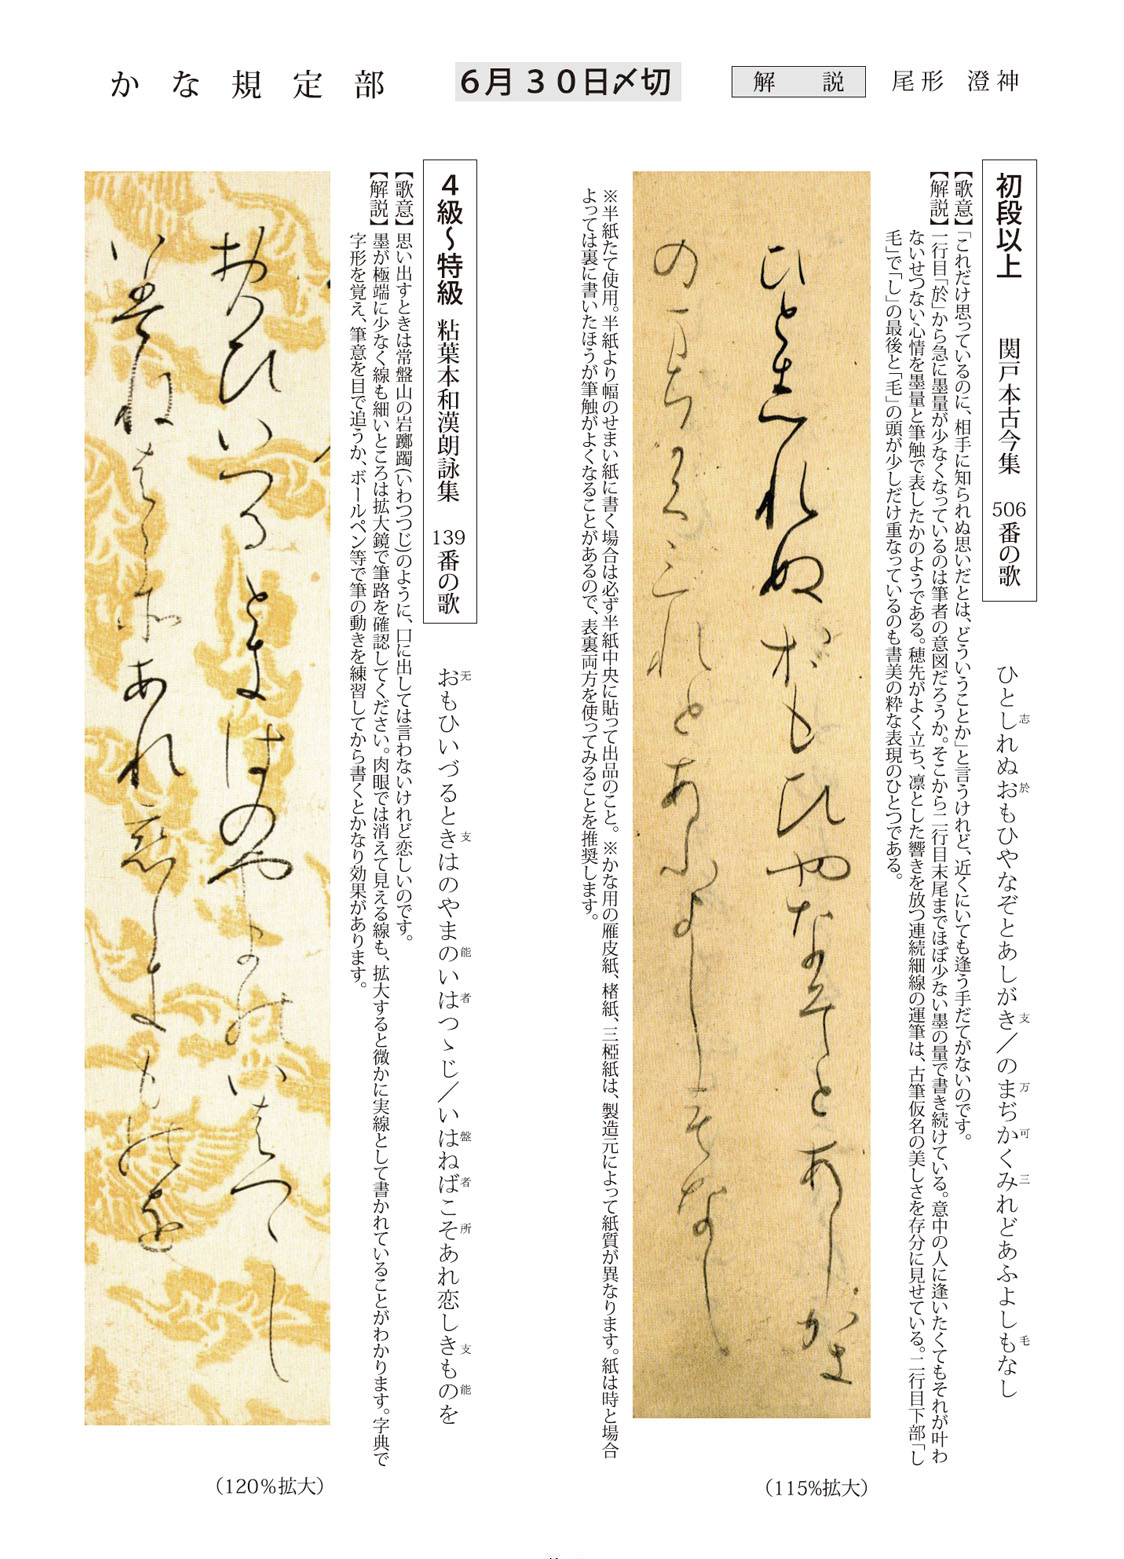 かな規定部
6月30日〆切
解説
尾形 澄神
初段以上 関戸本古今集 506番の歌
ひとしれぬおもひやなぞとあしがき／のまぢかくみれどあふよしもなし
志 於 支 万 可 三 毛
【歌意】「これだけ思っているのに、相手に知られぬ思いだとは、どういうことか」と言うけれど、近くにいても逢う手だてがないのです。
【解説】一行目「於」から急に墨量が少なくなっているのは筆者の意図だろうか。そこから二行目末尾までほぼ少ない墨の量で書き続けている。意中の人に逢いたくてもそれが叶わ
ないせつない心情を墨量と筆触で表したかのようである。穂先がよく立ち、凛とした響きを放つ連続細線の運筆は、古筆仮名の美しさを存分に見せている。二行目下部「し
毛」で「し」の最後と「毛」の頭が少しだけ重なっているのも書美の粋な表現のひとつである。
ひと志れぬ於もひやなそとあしか支
の万ち可く三れとあふよし毛なし
（115%拡大）
※半紙たて使用。半紙より幅のせまい紙に書く場合は必ず半紙中央に貼って出品のこと。※かな用の雁皮紙、楮紙、三椏紙は、製造元によって紙質が異なります。紙は時と場合
よっては裏に書いたほうが筆触がよくなることがあるので、表裏両方を使ってみることを推奨します。
4級〜特級 粘葉本和漢朗詠集 139番の歌
おもひいづるときはのやまのいはつゝじ／いはねばこそあれ恋しきものを
无 支 能 者 盤 者 所 支 能
【歌意】思い出すときは常盤山の岩躑躅（いわつつじ）のように、口に出しては言わないけれど恋しいのです。
【解説】墨が極端に少なく線も細いところは拡大鏡で筆路を確認してください。肉眼では消えて見える線も、拡大すると微かに実線として書かれていることがわかります。字典で
字形を覚え、筆意を目で追うか、ボールペン等で筆の動きを練習してから書くとかなり効果があります。
お无ひいつると支はのやまの能い者つゝし
い盤ね者こ所あれ恋し支も能を
（120%拡大）